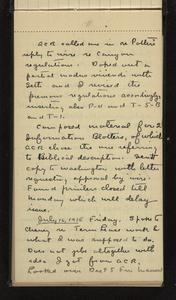 ACR called me in re Potter's
reply to wire re Canyon
regulations. Doped out a
partial modus vivendi with
Seth and I revised the
previous regulations accordingly,
inserting also P-11 and T-5-B
and T-1.
Composed material for 2
Information Blotters, of which
ACR chose the one referring
to Biblical description. Sent
copy to Washington with letter
requesting approval by wire.
Found printers closed till
Monday which will delay
issue.
July 12, 1918 Friday. Spoke to
Cheney re Term Lease work &
what I was supposed to do.
Does not jibe altogether with
idea I got from ACR.
Looked over Dist 5 Fire